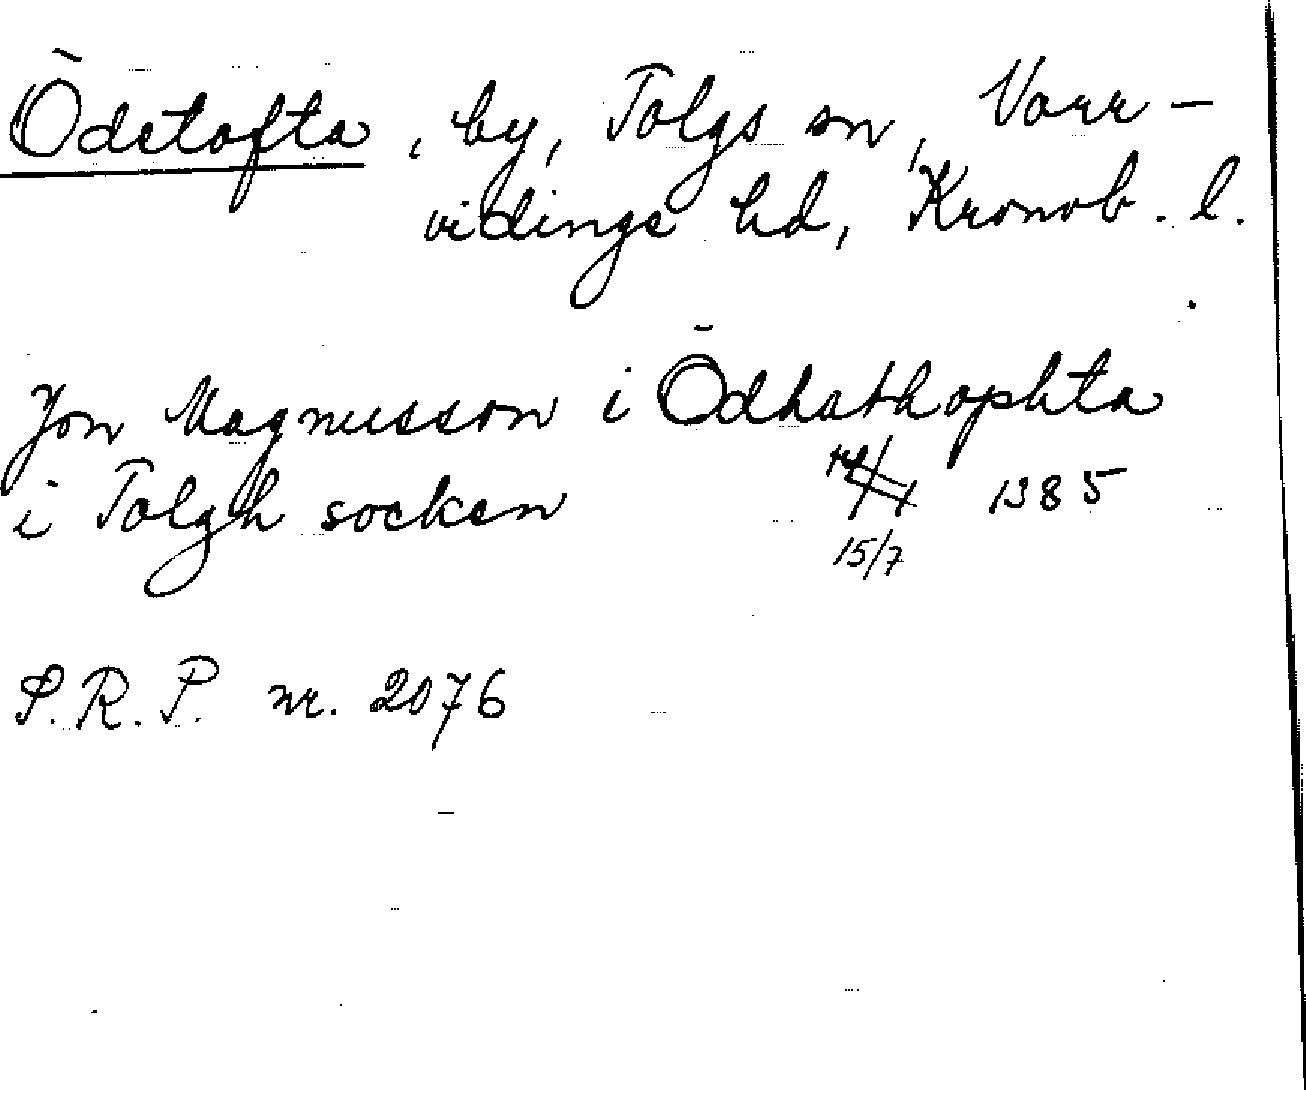 Ödetofta, by, Tolgs sn, Norr-
vidinge hd, Kronob. l.
Jon Magnusson i Ödhathophta
i Tolgh socken 1385
15/7
S.R.P. nr. 2076